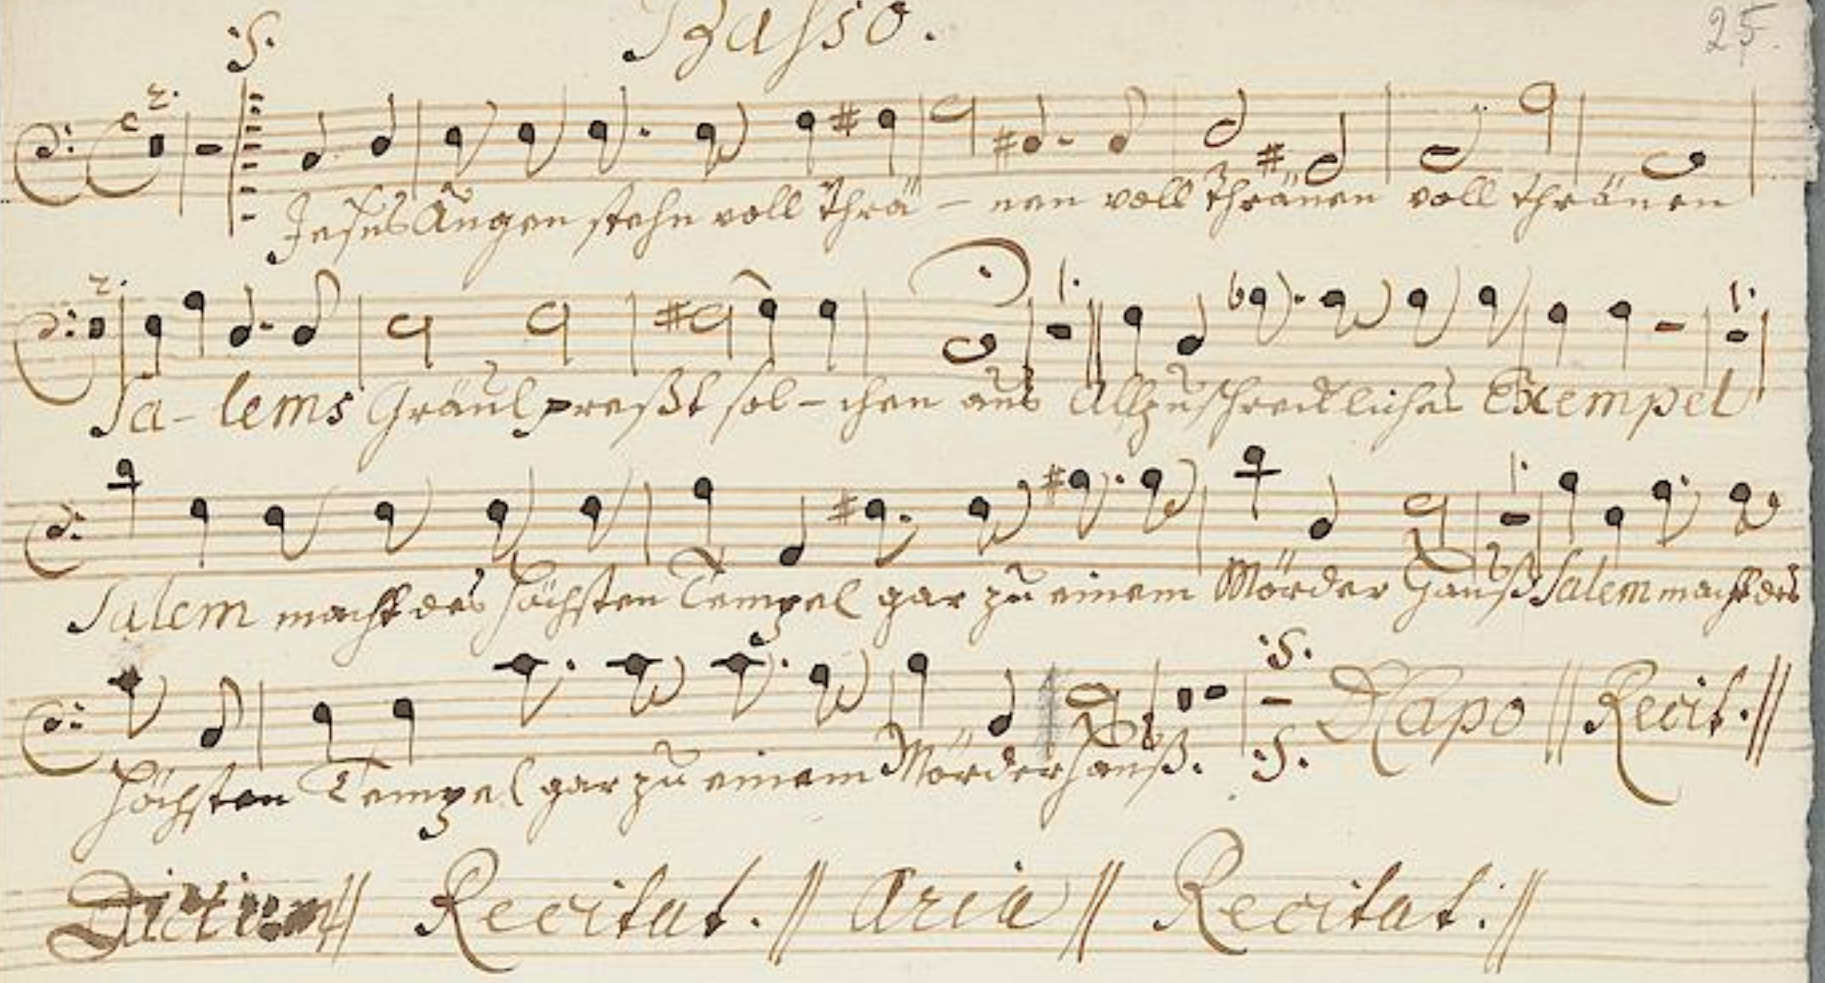 Basso.
25.
:S:
2.
Jesus Augen stehn voll Thrä - nen voll Thränen voll thränen
2. 1. 1.
Sa - lems Gräul preßt sol - chen aus Allzuschreckliches Exempel
1.
Salem macht des Höchsten Tempel gar zu einem Mörder Hauß Salem macht des
:S: D Capo || Recit. ||
Höchsten Tempel gar zu einem Mörderhauß. :S:
Dictum || Recitat. || Aria || Recitat: ||